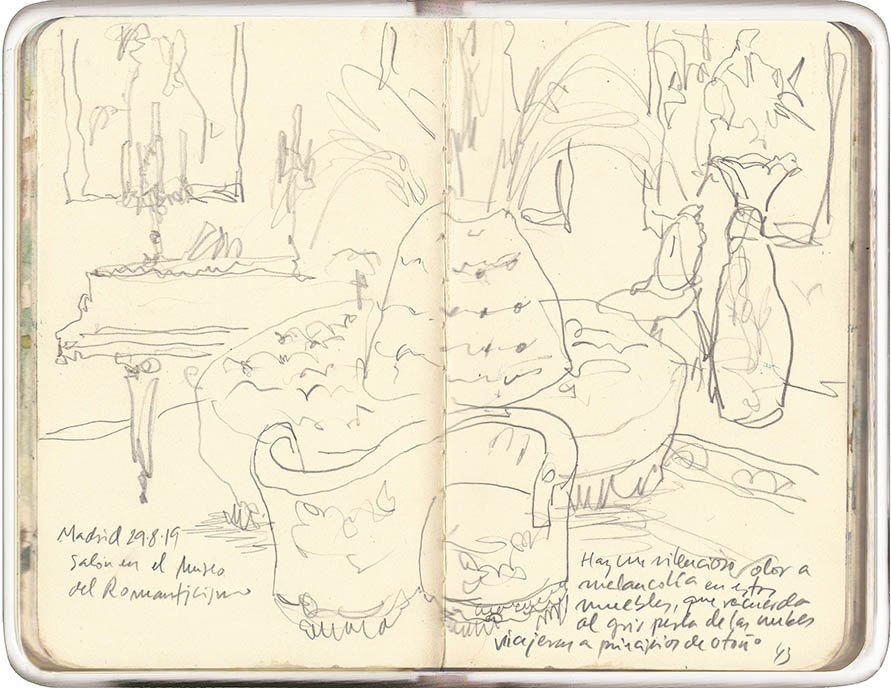 Madrid 29.8.19
Salón en el Museo
del Romanticismo
Hay un silencioso olor a
melancolía en estos
muebles, que recuerda
al gris perla de las nubes
viajeras a principios de otoño
43